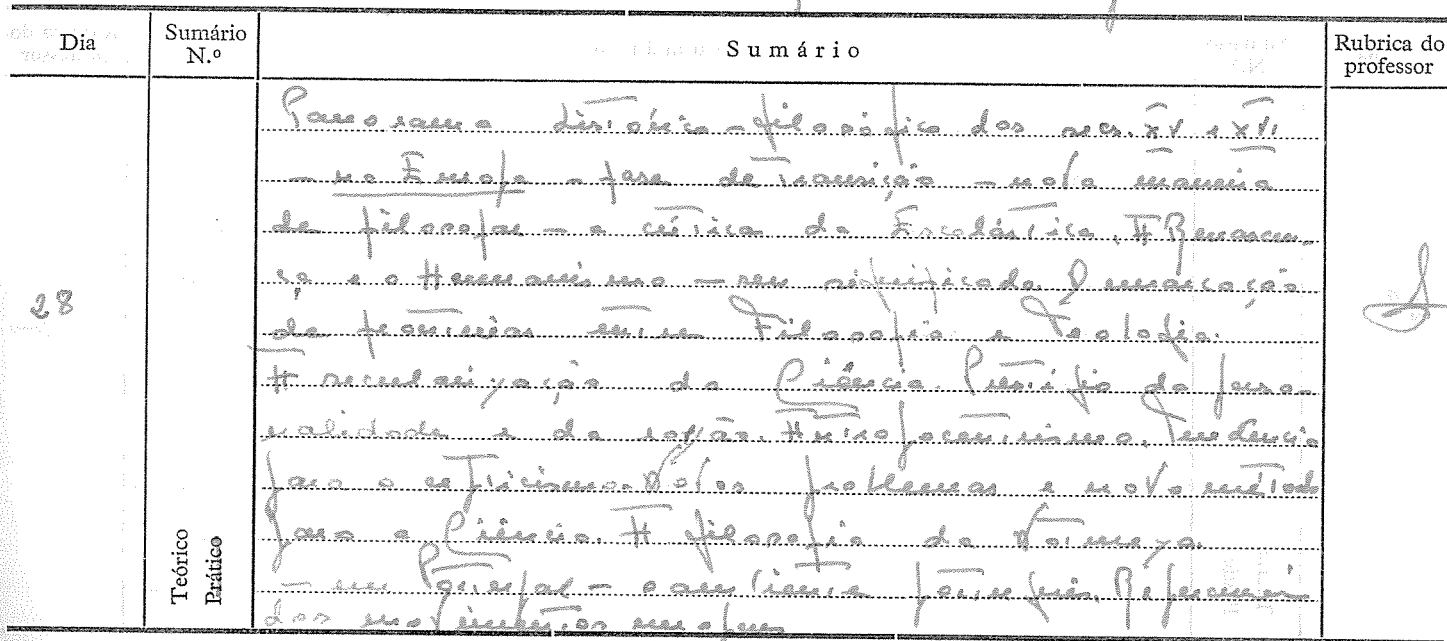 Dia
Sumário N.º
Sumário
Rubrica do professor
28
Teórico
Prático
Panorama histórico-filosófico dos secs. XV e XVI
- na Europa - fase de transição - nova maneira
de filosofar - a crítica da Escolástica. A Renascen-
ça e o Humanismo - seu significado. Demarcação
de fronteiras entre Filosofia e Teologia.
A secularização da Ciência. Prestígio da perso-
nalidade e da razão. Antropocentrismo. Tendência
para o cepticismo. Novos problemas e novo método
para a Ciência. A filosofia da Natureza.
- em Portugal - o ambiente português.
dos movimentos